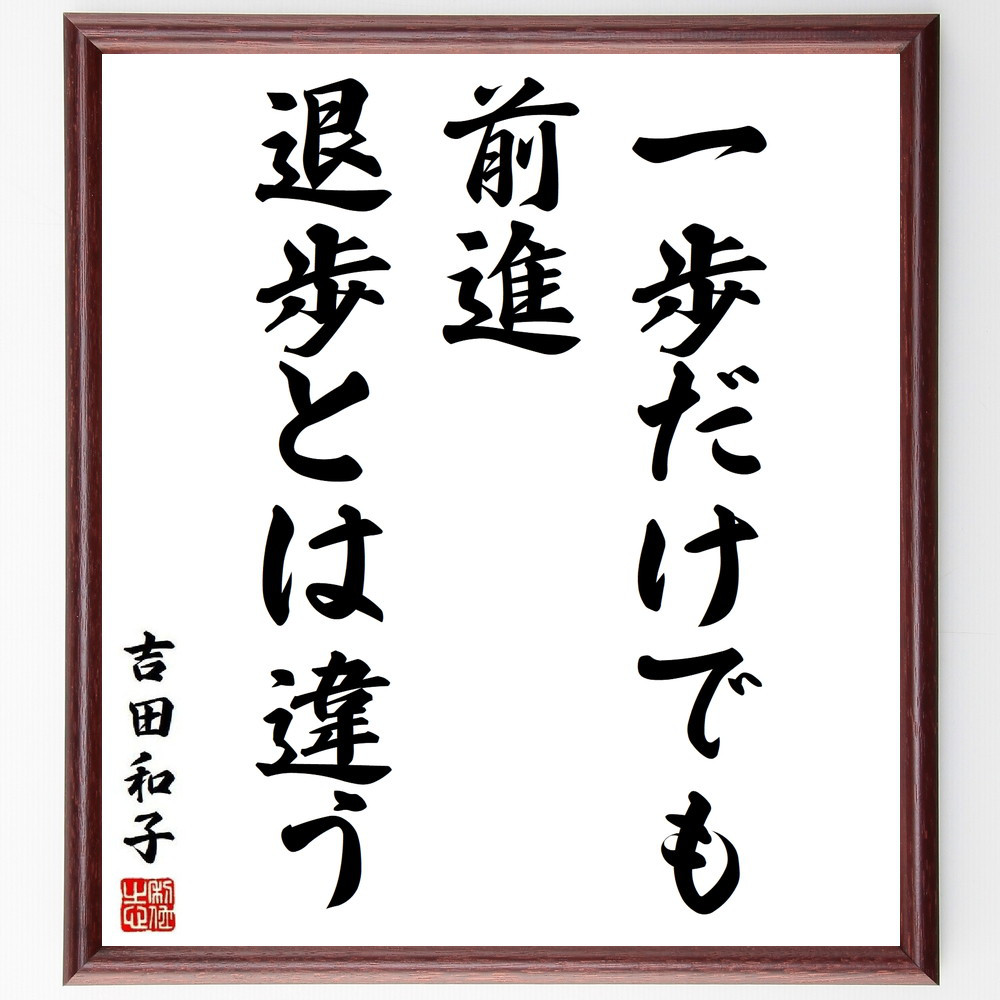 一歩だけでも
前進
退歩とは違う
吉田和子